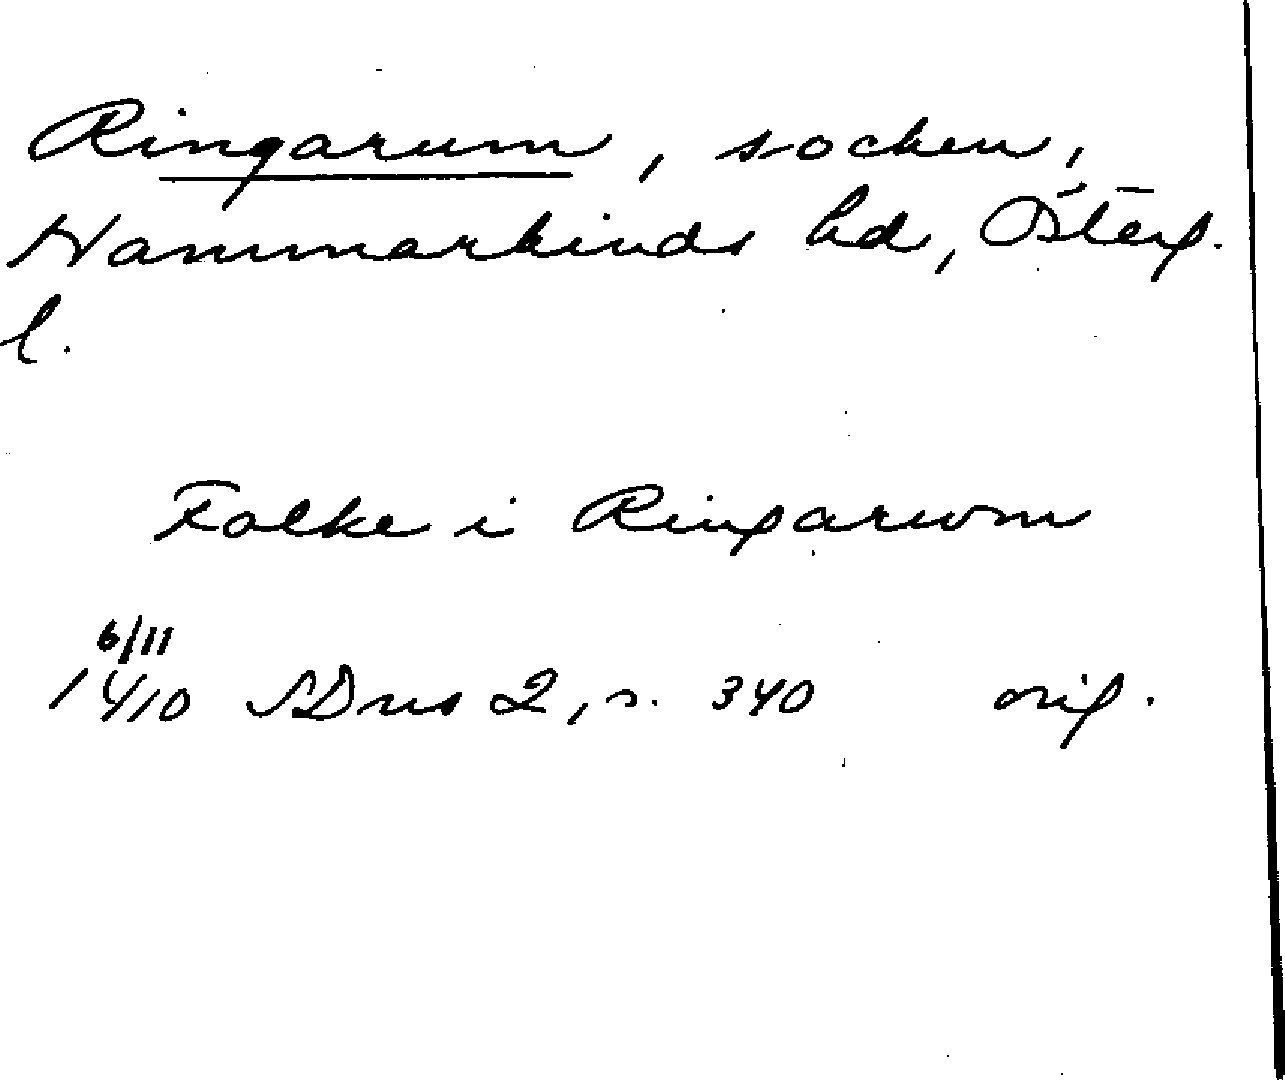 Ringarum, socken,
Hammarkinds hd, Österg.
l.
Folke i Ringarwm
6/11
1410 SDns 2, s. 340 orig.